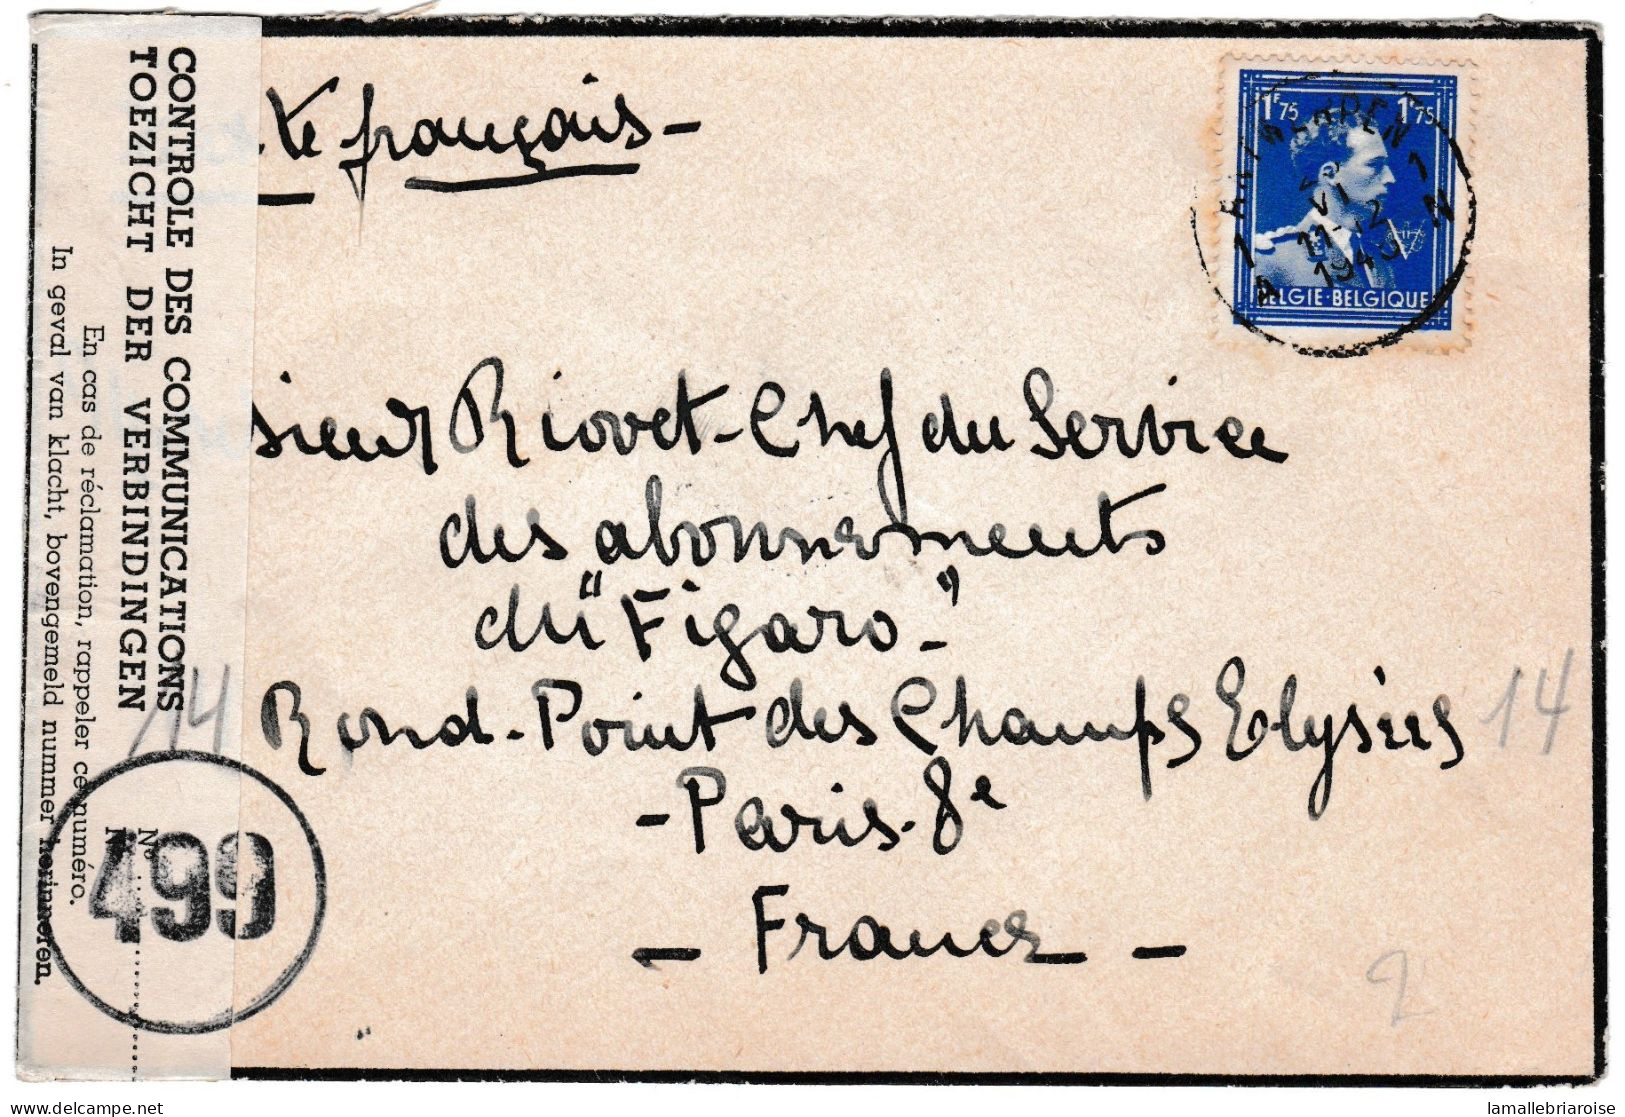 CONTROLE DES COMMUNICATIONS
TOEZICHT DER VERBINDINGEN
En cas de réclamation, rappeler ce numéro.
In geval van klacht, bovengemeld nummer herinneren.
No
499
te français -
1F75 1F75
BELGIE-BELGIQUE
1 ANTWERPEN 1
VI
11-12
194
A N
sieur Riovet - Chef du Service
des abonnements
du "Figaro"
Rond-Point des Champs Elysées
14
14
- Paris - 8e
- France -
2
lamallebriaroise
delcampe.net